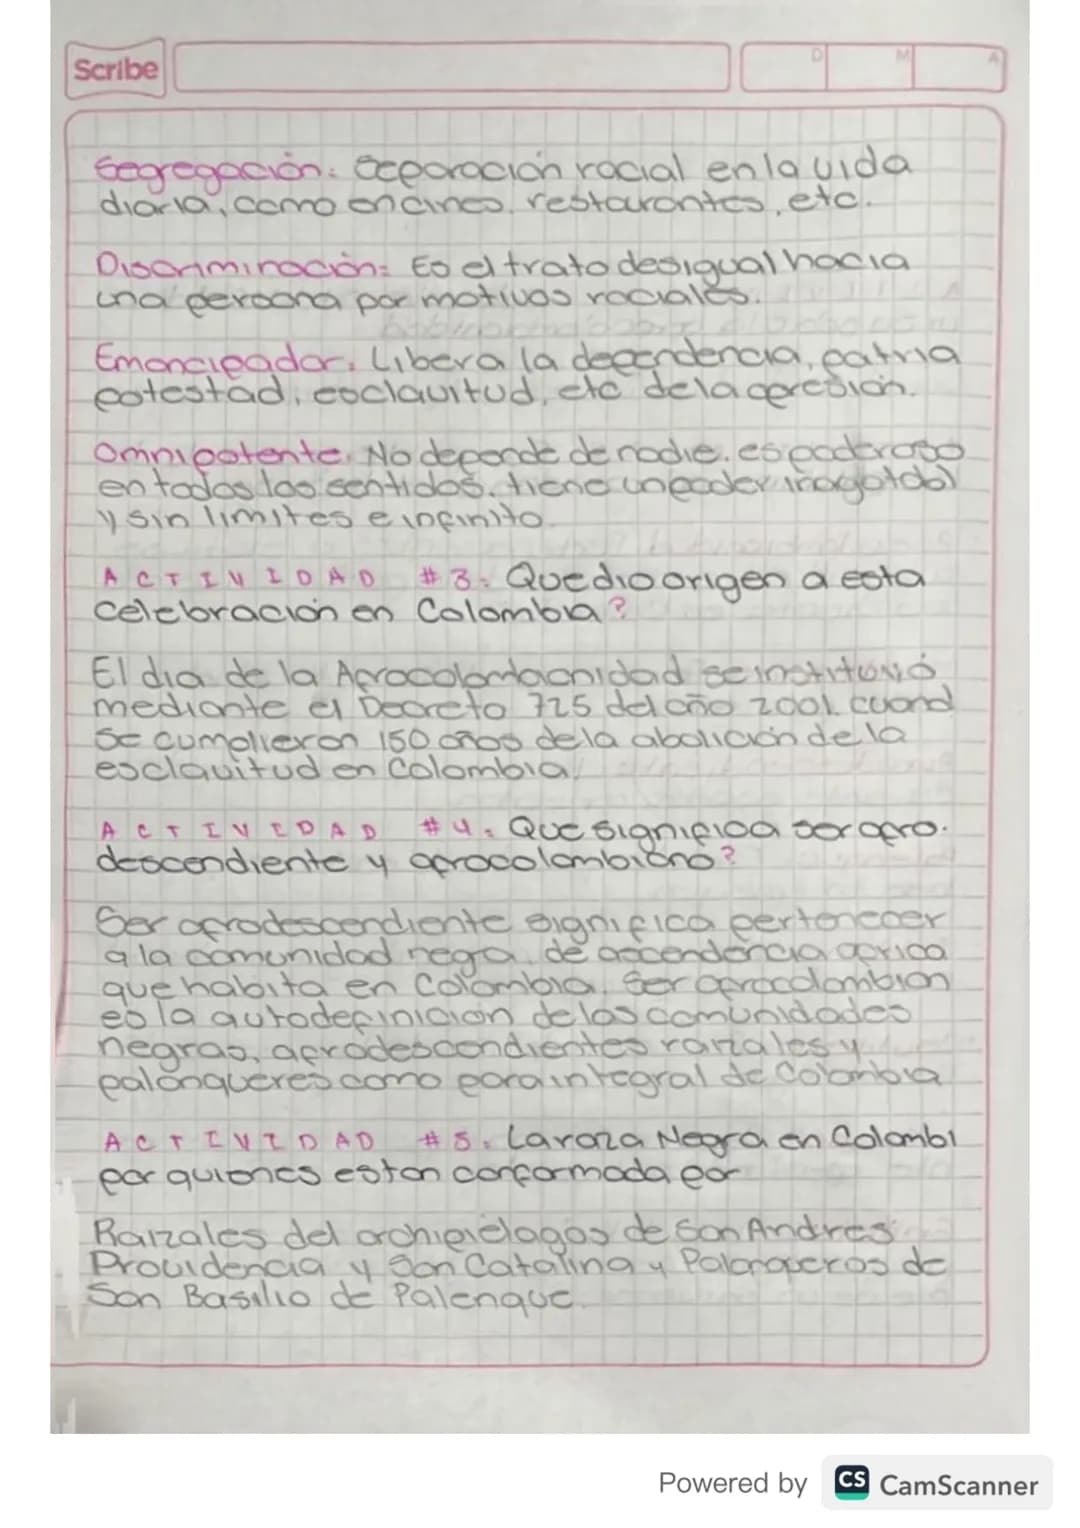 Scribe
D M A
Segregación: Separación racial en la vida
diaria, como en cines, restaurantes, etc.
Discriminación: Es el trato desigual hacia
una persona por motivos raciales.
Emancipador: Libera la dependencia, patria
potestad, esclavitud, etc de la opresión.
Omnipotente: No depende de nadie. es poderoso
en todos los sentidos. tiene un poder inagotabl
y sin limites e infinito
ACTIVIDAD #3: Que dio origen a esta
celebración en Colombia?
El dia de la Afrocolombianidad se instituyó
mediante el Decreto 725 del año 2001. cuand
se cumplieron 150 años de la abolición de la
esclavitud en Colombia.
ACTIVIDAD #4: Que significa ser afro.
descendiente y afrocolombiano?
Ser afrodescendiente significa pertenecer
a la comunidad negra, de ascendencia africa
que habita en Colombia. Ser afrocolombian
es la autodefinicion de las comunidades
negras, afrodescendientes raizales y
palenqueres como para integral de Colombia
ACTIVIDAD #5: La raza Negra en Colombi
por quienes estan conformada por
Raizales del archipiélagos de San Andres
Providencia y San Catalina y Palanqueros de
San Basilio de Palenque.
Powered by CS CamScanner